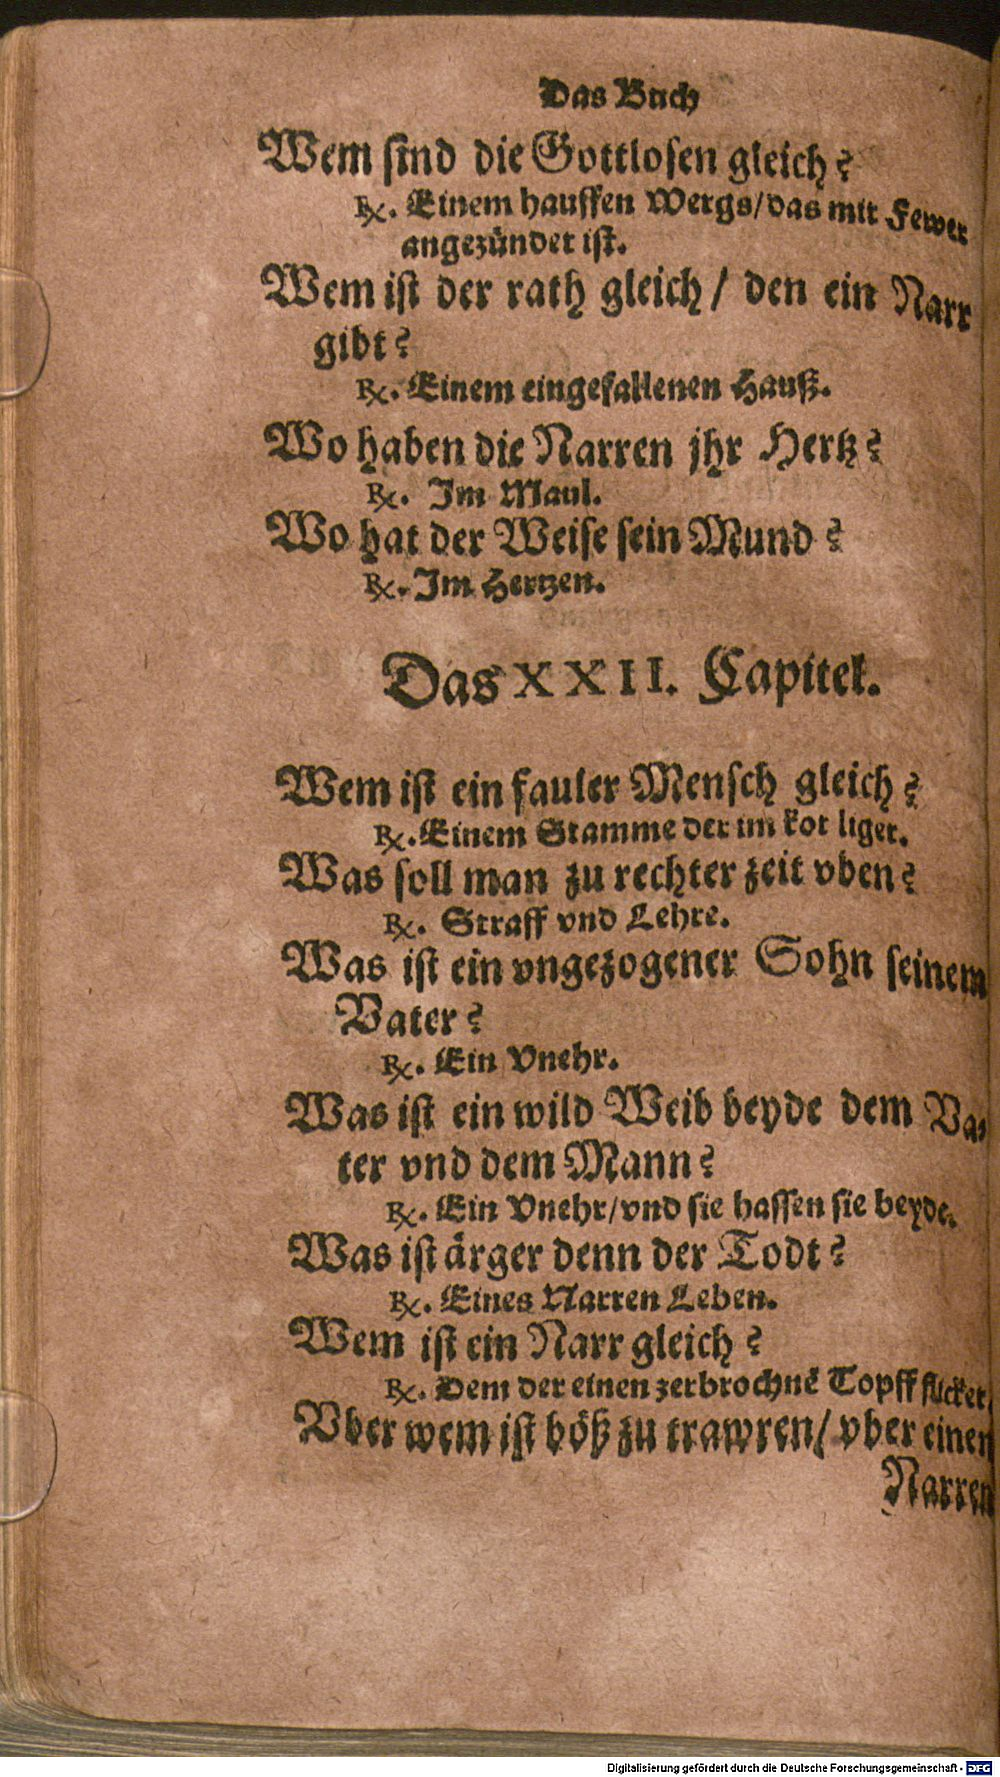 Das Buch
Wem sind die Gottlosen gleich?
℞. Einem hauffen Wergs/das mit Fewer
angezündet ist.
Wem ist der rath gleich/ den ein Narr
gibt?
℞. Einem eingefallenen Hauß.
Wo haben die Narren jhr Hertz?
℞. Im Maul.
Wo hat der Weise sein Mund?
℞. Im Hertzen.
Das XXII. Capitel.
Wem ist ein fauler Mensch gleich?
℞. Einem Stamme der im kot liget.
Was soll man zu rechter zeit vben?
℞. Straff vnd Lehre.
Was ist ein vngezogener Sohn seinem
Vater?
℞. Ein Vnehr.
Was ist ein wild Weib beyde dem Va-
ter vnd dem Mann?
℞. Ein Vnehr/vnd sie hassen sie beyde.
Was ist ärger denn der Todt?
℞. Eines Narren Leben.
Wem ist ein Narr gleich?
℞. Dem der einen zerbrochnē Topff flicket.
Vber wem ist böß zu trawren/ vber einen
Narren
Digitalisierung gefördert durch die Deutsche Forschungsgemeinschaft - DFG